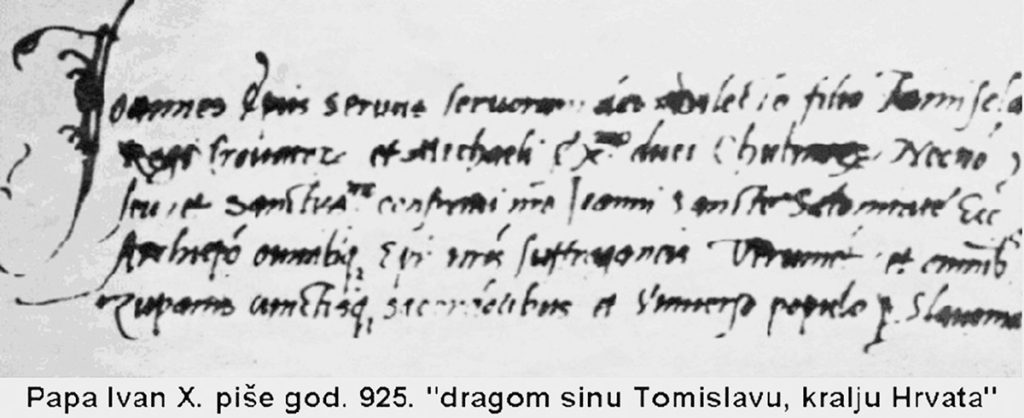 Joannes Epũs servus servorum dei dilecto filio Tamisela
Regi Crovatorum et Michaeli duci Chulmorum Necnõ
et confratri nro Joanni Sancte Salonitane Ecc
Archiepõ omnibusq̃ Epĩs suffraganeis Verum et omnib
Zupanis cunctisq̃ sacerdotibus et Universo populo p Slavonia
Papa Ivan X. piše god. 925. "dragom sinu Tomislavu, kralju Hrvata"